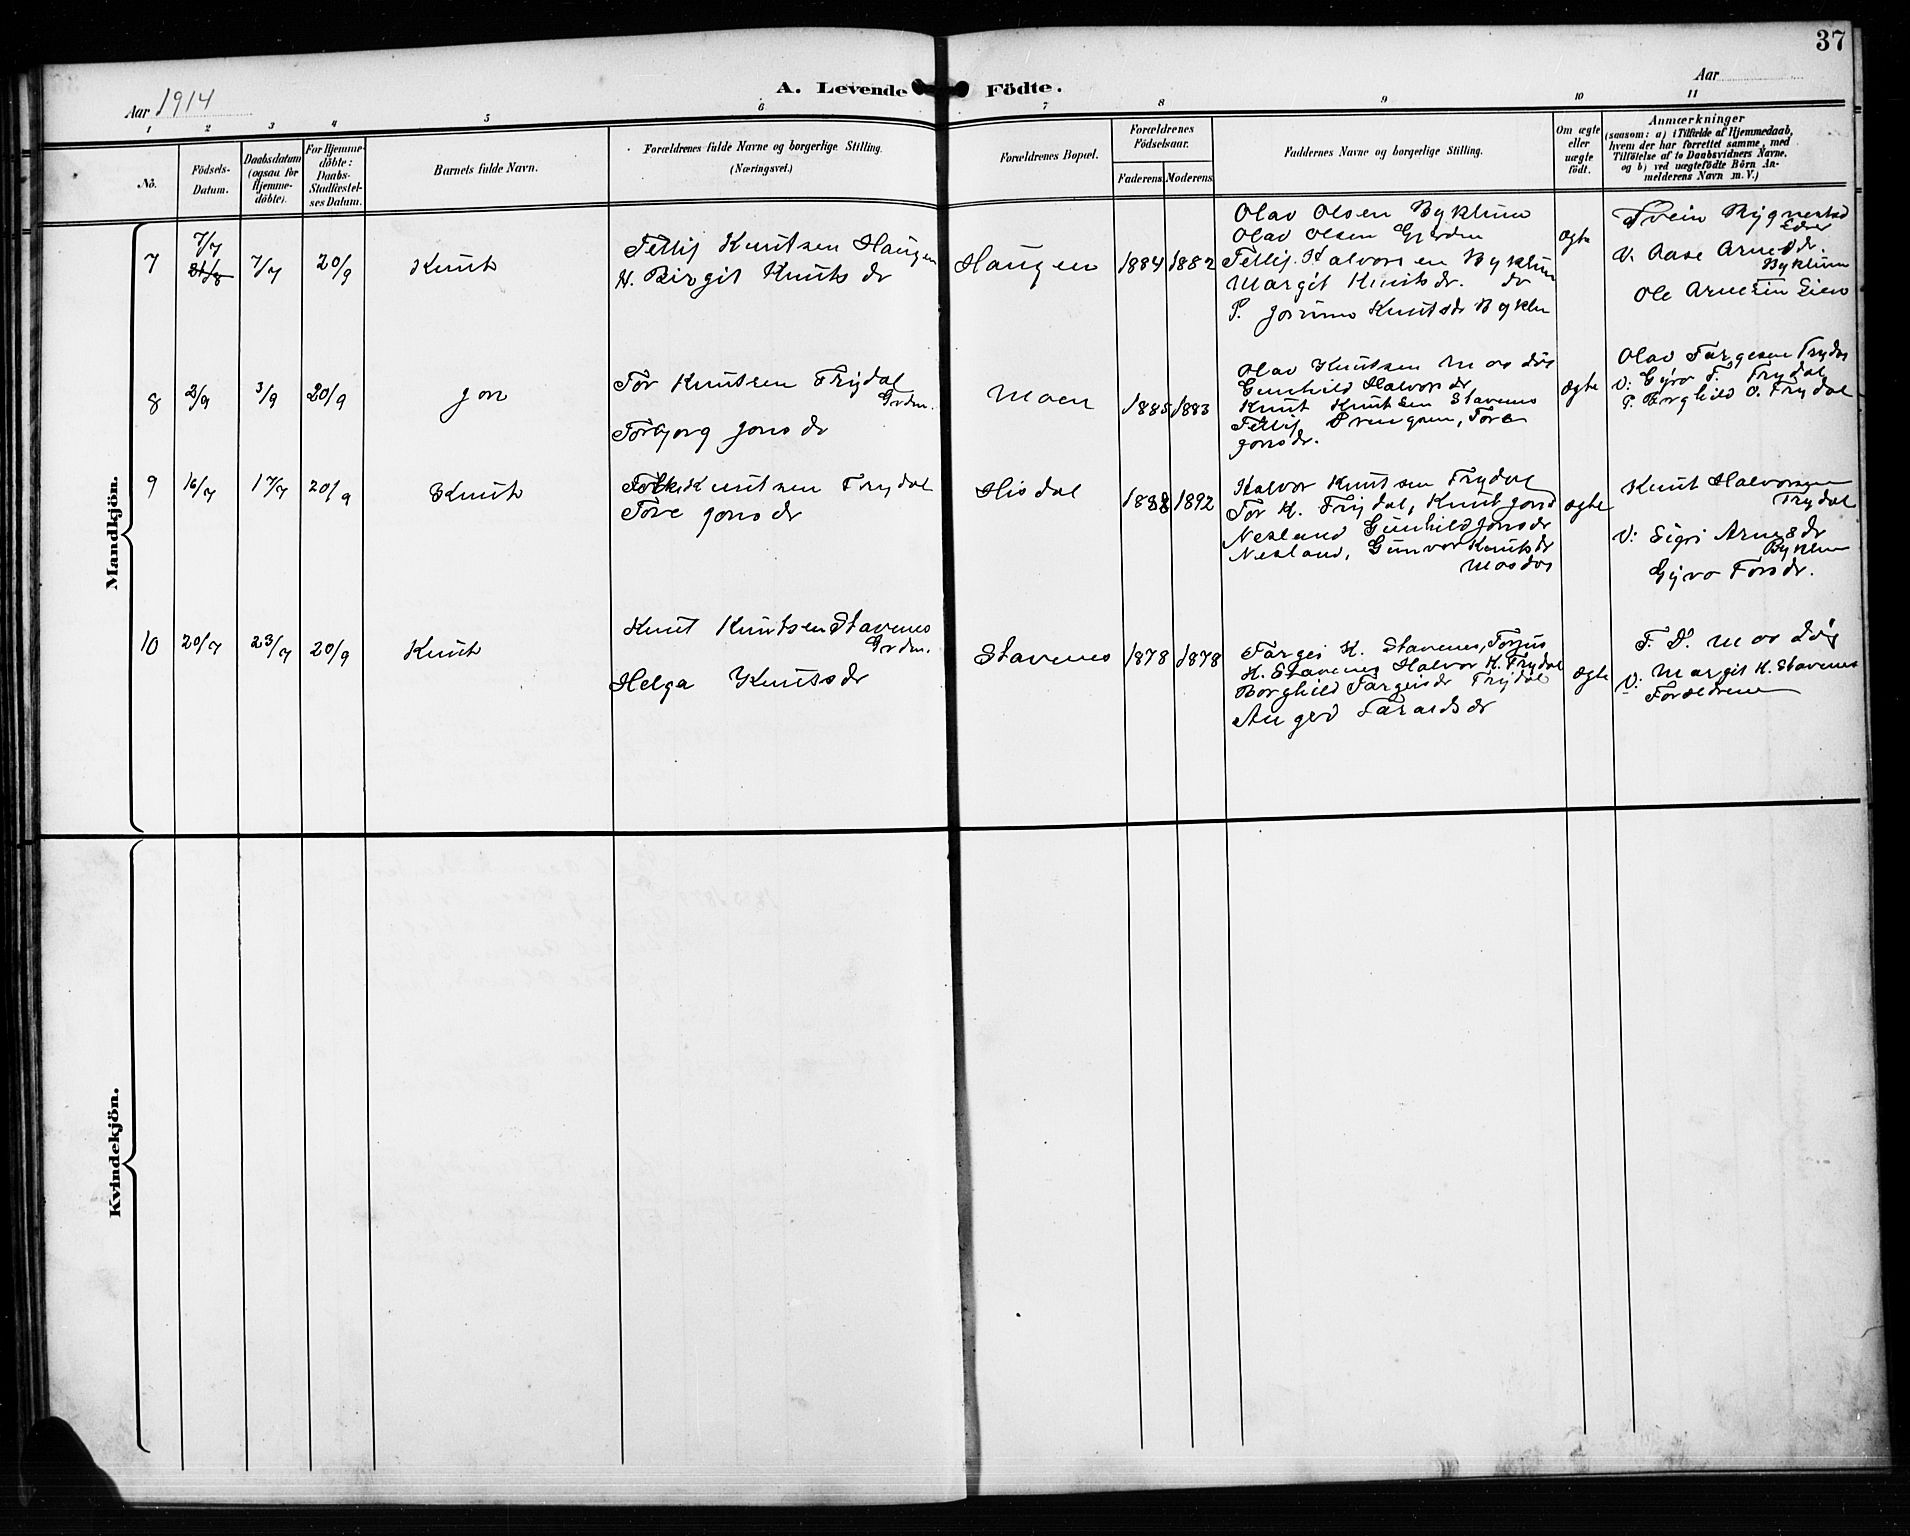 37
Aar 1914
A. Levende Födte.
Aar
1 2 3 4 5 6 7 8 9 10 11
No.
Födsels-
Datum.
Daabsdatum
(ogsaa for
Hjemme-
döbte).
For Hjemme-
döbte:
Daabs-
Stadfæstel-
ses Datum.
Barnets fulde Navn.
Forældrenes fulde Navne og borgerlige Stilling.
(Næringsvei.)
Forældrenes Bopæl.
Forældrenes
Födselsaar.
Faderens.
Moderens.
Faddernes Navne og borgerlige Stilling.
Om ægte
eller
uægte
født.
Anmærkninger
(saasom: a) i Tilfælde af Hjemmedaab,
hvem der har forrettet samme, med
Tilföielse af to Daabsvidners Navne,
og b) ved uægtefödte Börn An-
melderens Navn m. V.)
Mandkjön.
7
7/7
7/7
20/9
Knut
Tellif Knutsen Haugen
H. Birgit Knutsdr
Haugen
1884
1882
Olav Olsen Byklum
Olav Olsen
Tellif Halvorsen Byklum
Margit Knutsdr. do
P. Jorunn Knutsdr Byklum
Ægte
Svein Rygnestad
V. Aase Arnesdr.
Byklum
Ole Arnesen Lien
8
2/9
3/9
20/9
Jon
Tor Knutsen Trydal
Grdm.
Torbjorg Jonsdr
Moen
1885
1883
Olav Knutsen Mosdøl
Gunhild Halvorsdr
Knut Knutsen Stavenes
Tellif Drengsen, Tore
Jonsdr.
Ægte
Olav Targesen Trydal
V: Gyro T. Trydal
P. Borghild O. Trydal
9
16/7
17/7
20/9
Knut
Knutsen Trydal
Tore Jonsdr
Hisdal
1892
Halvor Knutsen Trydal
Tor K. Trydal, Knut Jons
Nesland Gunhild Jonsdr
Nesland, Gunvor Knutsdr
Mosdøl
Ægte
Knut Halvorsen
Trydal
V: Sigri Arnesdr
Byklum
Gyro Torsdr.
10
20/7
23/7
20/9
Knut
Knut Knutsen Stavenes
Grdm.
Helga Knutsdr
Stavenes
1878
1878
Targei K. Stavenes, Torjus
K. Stavenes Halvor K. Trydal
Borghild Targeisdr Trydal
Anger Taraldsdr
Ægte
T. D. Mosdøl
V: Margit K. Stavenes
Forældrene
Kvindekjön.